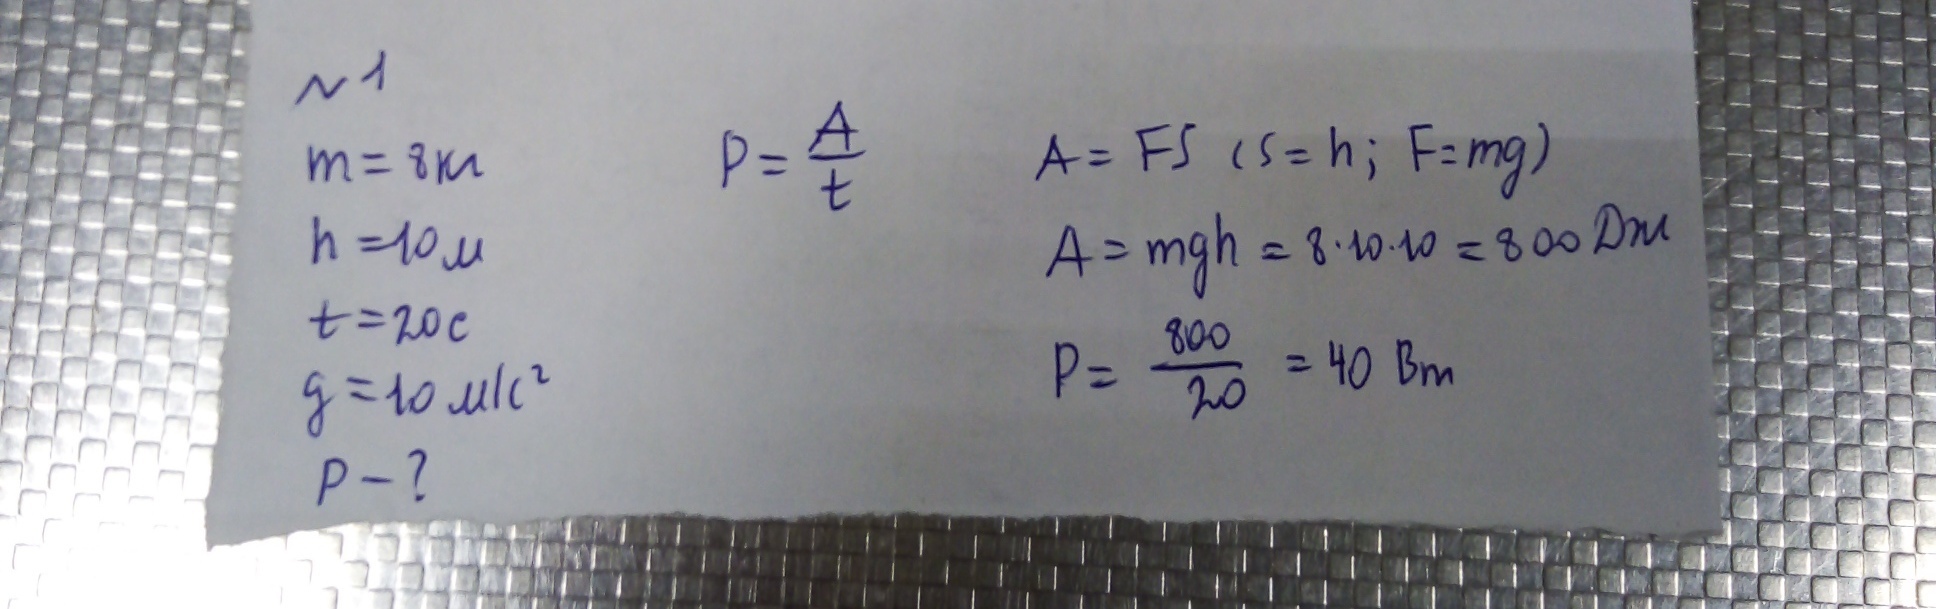 ~1
m = 8кг
h = 10м
t = 20с
g = 10 м/с²
P - ?
P = A/t
A = FS (S = h; F = mg)
A = mgh = 8·10·10 = 800 Дж
P = 800/20 = 40 Вт